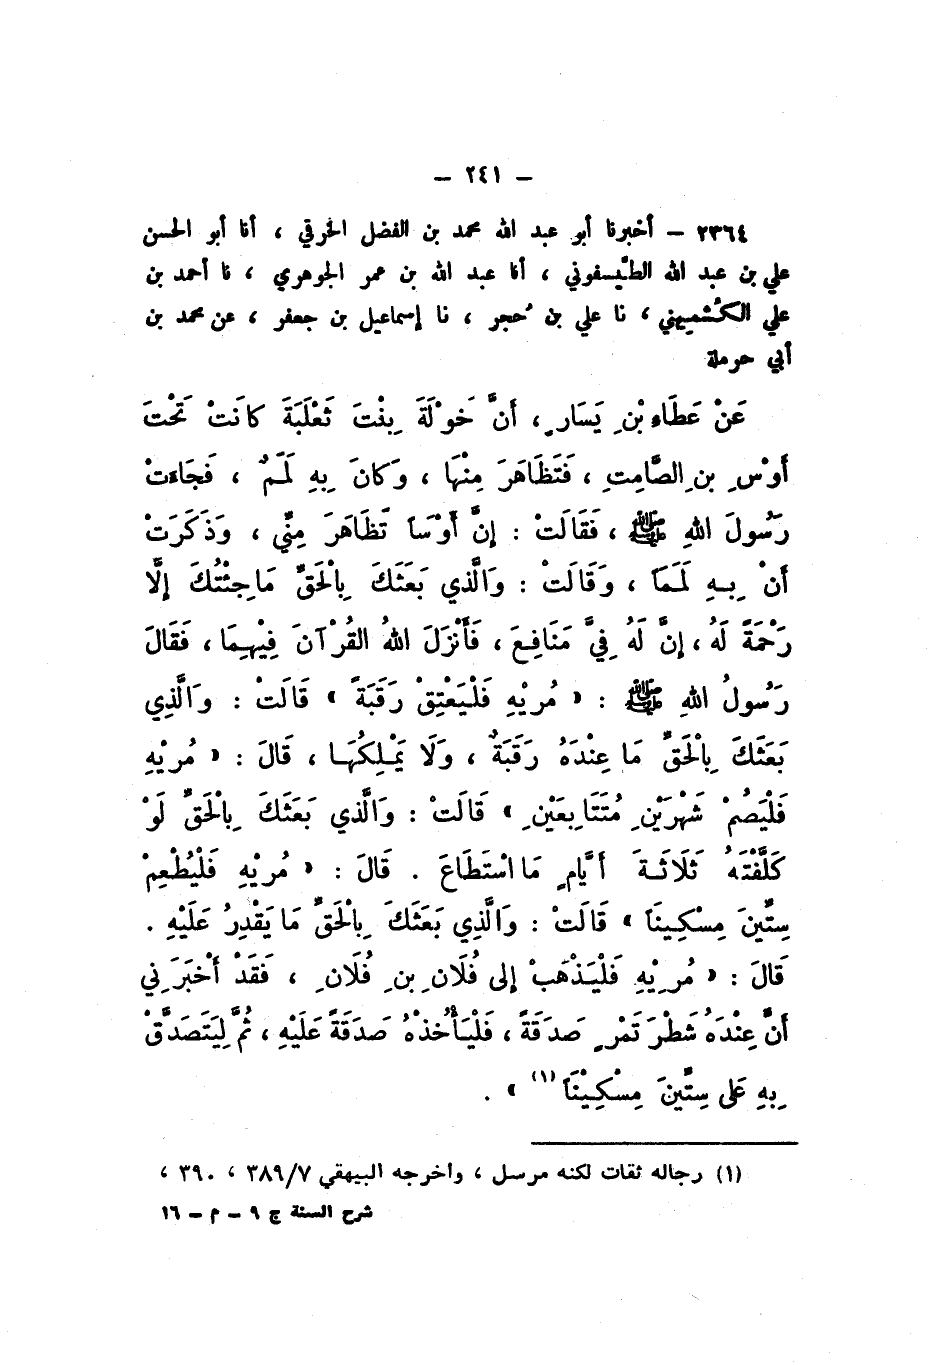 – ٢٤١ –
٢٣٦٤ – أخبرنا أبو عبد الله محمد بن الفضل الخرقي ، أنا أبو الحسن
علي بن عبد الله الطَّيسفوني ، أنا عبد الله بن عمر الجوهري ، نا أحمد بن
علي الكُشْميهني ، نا علي بن حُجر ، نا إسماعيل بن جعفر ، عن محمد بن
أبي حرملة
عَنْ عَطَاءِ بْنِ يَسَارٍ ، أَنَّ خَوْلَةَ بِنْتَ ثَعْلَبَةَ كَانَتْ تَحْتَ
أَوْسِ بنِ الصَّامِتِ ، فَتَظَاهَرَ مِنْهَا ، وَكَانَ بِهِ لَمَمٌ ، فَجَاءَتْ
رَسُولَ اللهِ ﷺ ، فَقَالَتْ : إِنَّ أَوْسَاً تَظَاهَرَ مِنِّي ، وَذَكَرَتْ
أَنْ بِهِ لَمَمَاً ، وَقَالَتْ : وَالَّذِي بَعَثَكَ بِالْحَقِّ مَا جِئْتُكَ إِلَّا
رَحْمَةً لَهُ ، إِنَّ لَهُ فِيَّ مَنَافِعَ ، فَأَنْزَلَ اللهُ القُرْآنَ فِيْهِمَا ، فَقَالَ
رَسُولُ اللهِ ﷺ : « مُرِيْهِ فَلْيَعْتِقْ رَقَبَةً » قَالَتْ : وَالَّذِي
بَعَثَكَ بِالْحَقِّ مَا عِنْدَهُ رَقَبَةٌ ، وَلَا يَمْلِكُهَا ، قَالَ : « مُرِيْهِ
فَلْيَصُمْ شَهْرَيْنِ مُتَتَابِعَيْنِ » قَالَتْ : وَالَّذِي بَعَثَكَ بِالْحَقِّ لَوْ
كَلَّفْتَهُ ثَلَاثَةَ أَيَّامٍ مَا اسْتَطَاعَ . قَالَ : « مُرِيْهِ فَلْيُطْعِمْ
سِتِّينَ مِسْكِينَاً » قَالَتْ : وَالَّذِي بَعَثَكَ بِالْحَقِّ مَا يَقْدِرُ عَلَيْهِ .
قَالَ : « مُرِيْهِ فَلْيَذْهَبْ إِلى فُلَانِ بنِ فُلَانِ ، فَقَدْ أَخْبَرَنِي
أَنَّ عِنْدَهُ شَطْرَ تَمْرٍ صَدَقَةً ، فَلْيَأْخُذْهُ صَدَقَةً عَلَيْهِ ، ثُمَّ لِيَتَصَدَّقْ
بِهِ عَلَى سِتِّينَ مِسْكِيْنَاً (١) » .
(١) رجاله ثقات لكنه مرسل ، وأخرجه البيهقي ٣٨٩/٧ ، ٣٩٠ ،
شرح السنة ج ٩ – م – ١٦